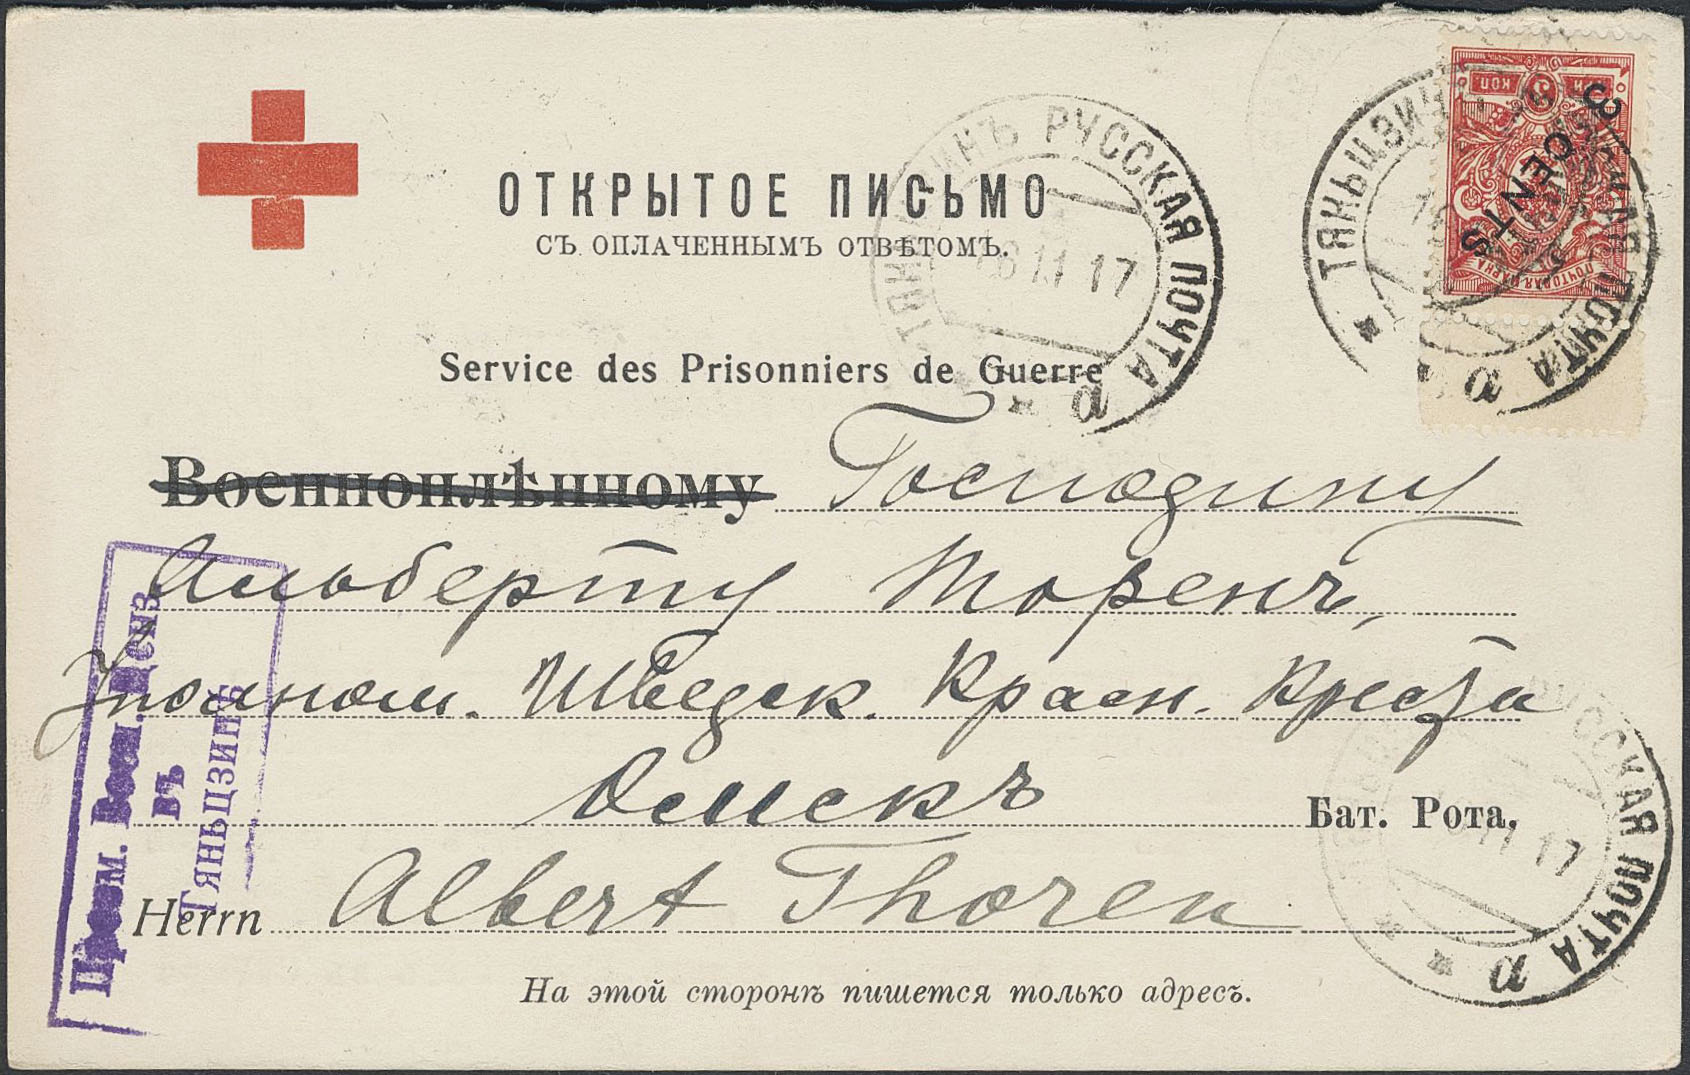 ОТКРЫТОЕ ПИСЬМО
СЪ ОПЛАЧЕННЫМЪ ОТВѢТОМЪ.
Service des Prisonniers de Guerre
Военноплѣнному Господину
Альберту Торенъ,
Уполном. Шведск. Красн. Креста
Омскъ
Бат. Рота.
Herrn Albert Thoren
На этой сторонѣ пишется только адресъ.
Пром. Воен. Ценз
въ
Тяньцзинѣ
ТЯНЬЦЗИНЪ РУССКАЯ ПОЧТА
11 17
а
ТЯНЬЦЗИНЪ РУССКАЯ ПОЧТА
а
РУССКАЯ ПОЧТА
11 17
а
3 КОП
3 CENTS
ПОЧТОВАЯ МАРКА